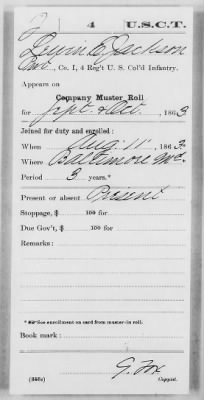 J | 4 | U.S.C.T.
Louis E. Jackson
Pvt, Co. I, 4 Reg't U. S. Col'd Infantry.
Appears on
Company Muster Roll
for Sept & Oct, 1863
Joined for duty and enrolled:
When Aug. 11, 1863
Where Baltimore Md.
Period 3 years.*
Present or absent Present
Stoppage, $ 100 for
Due Gov't, $ 100 for
Remarks:
* See enrollment on card from muster-in roll.
Book mark:
G. Fox
(358c) Copyist.